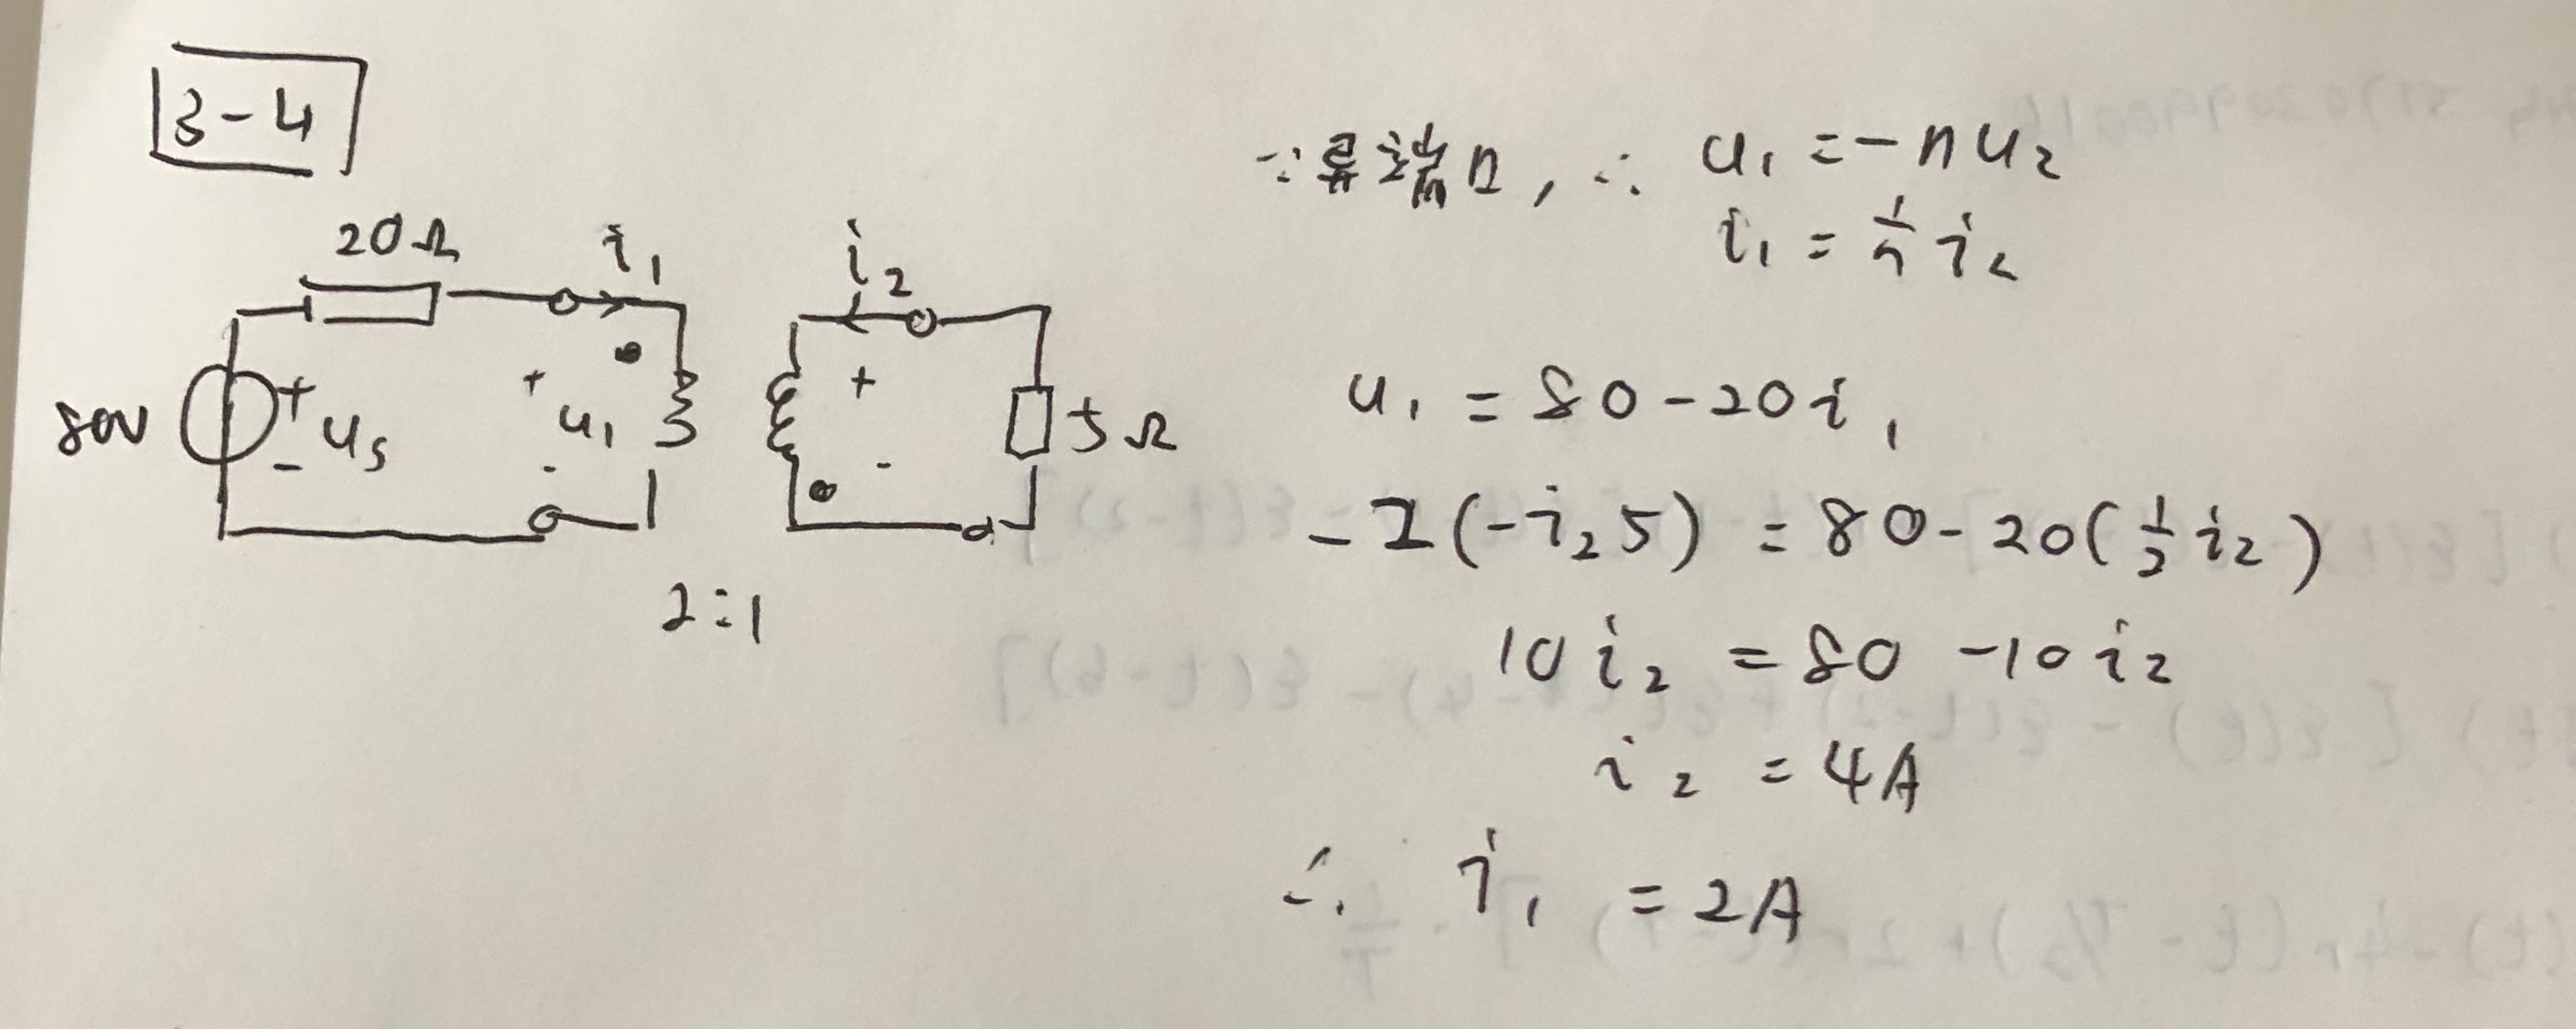 3-4
20Ω
i₁
i₂
80V
+
uₛ
-
+
u₁
-
+
-
5Ω
2:1
∵异端口, ∴ u₁ = -nu₂
i₁ = 1/n i₂
u₁ = 80-20i₁
-2(-i₂5) = 80-20(1/2 i₂)
10i₂ = 80-10i₂
i₂ = 4A
∴ i₁ = 2A